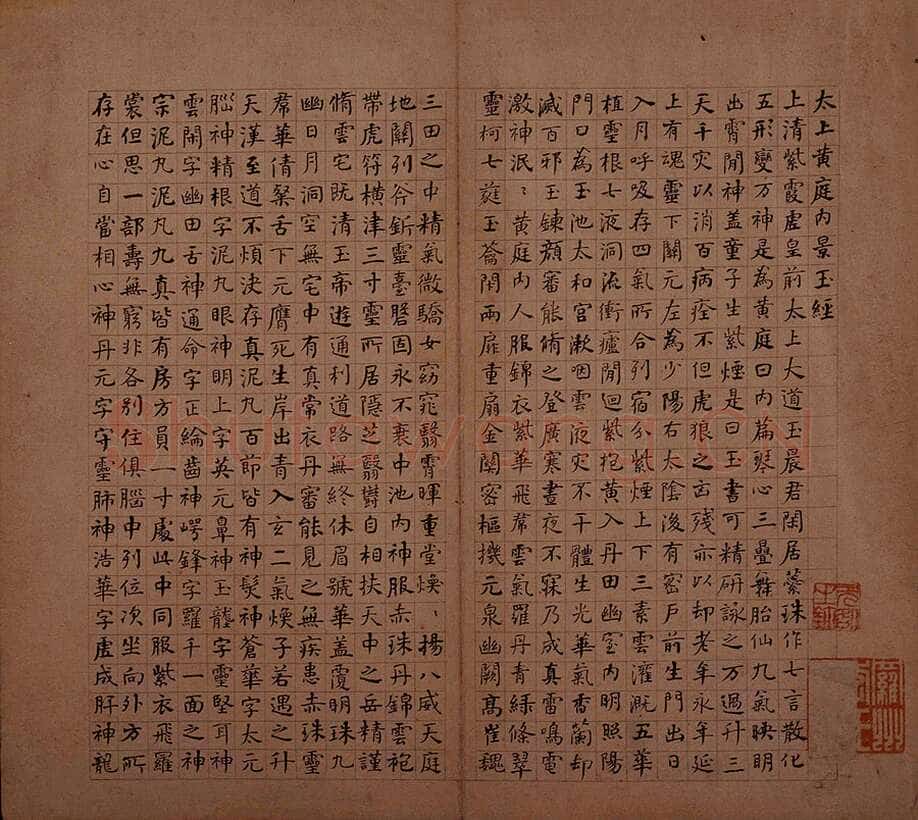 太上黃庭內景玉經
上清紫霞虛皇前太上大道玉晨君閑居蘂珠作七言散化
五形變万神是為黃庭曰內篇琴心三疊舞胎仙九氣映明
出霄間神蓋童子生紫煙是曰玉書可精研詠之万過升三
天千灾以消百病痊不但虎狼之凶殘亦以却老年永年延
上有魂靈下關元左為少陽右太陰後有密戶前生門出日
入月呼吸存四氣所合列宿分紫煙上下三素雲灌溉五華
植靈根七液洞流衝廬間迴紫抱黃入丹田幽室內明照陽
門口為玉池太和宮漱咽雲液灾不干體生光華氣香蘭却
滅百邪玉鍊顏審能脩之登廣寒晝夜不寐乃成真雷鳴電
激神泯〻黃庭內人服錦衣紫華飛帬雲氣羅丹青綠條翠
靈柯七蕤玉籥閉兩扉重扇金關密樞機元泉幽闕高崔巍
三田之中精氣微驕女窈窕翳霄暉重堂煥〻揚八威天庭
地關列斧釿靈臺盤固永不衰中池內神服赤珠丹錦雲袍
帶虎符橫津三寸靈所居隱芝翳鬱自相扶天中之岳精謹
脩雲宅既清玉帝遊通利道路無終休眉號華蓋覆明珠九
幽日月洞空無宅中有真常衣丹審能見之無疾患赤珠靈
帬華倩粲舌下元膺死生岸出青入玄二氣煥子若遇之升
天漢至道不煩決存真泥丸百節皆有神髮神蒼華字太元
腦神精根字泥丸眼神明上字英元鼻神玉壟字靈堅耳神
雲閑字幽田舌神通命字正綸齒神崿鋒字羅千一面之神
宗泥丸泥丸九真皆有房方員一寸處此中同服紫衣飛羅
裳但思一部壽無窮非各別住俱腦中列位次坐向外方所
存在心自當相心神丹元字守靈肺神浩華字虛成肝神龍